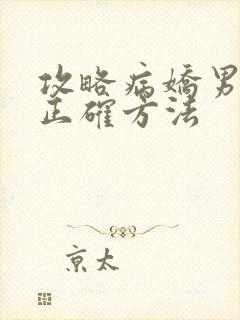 攻略病嬌男
正確方法
京太